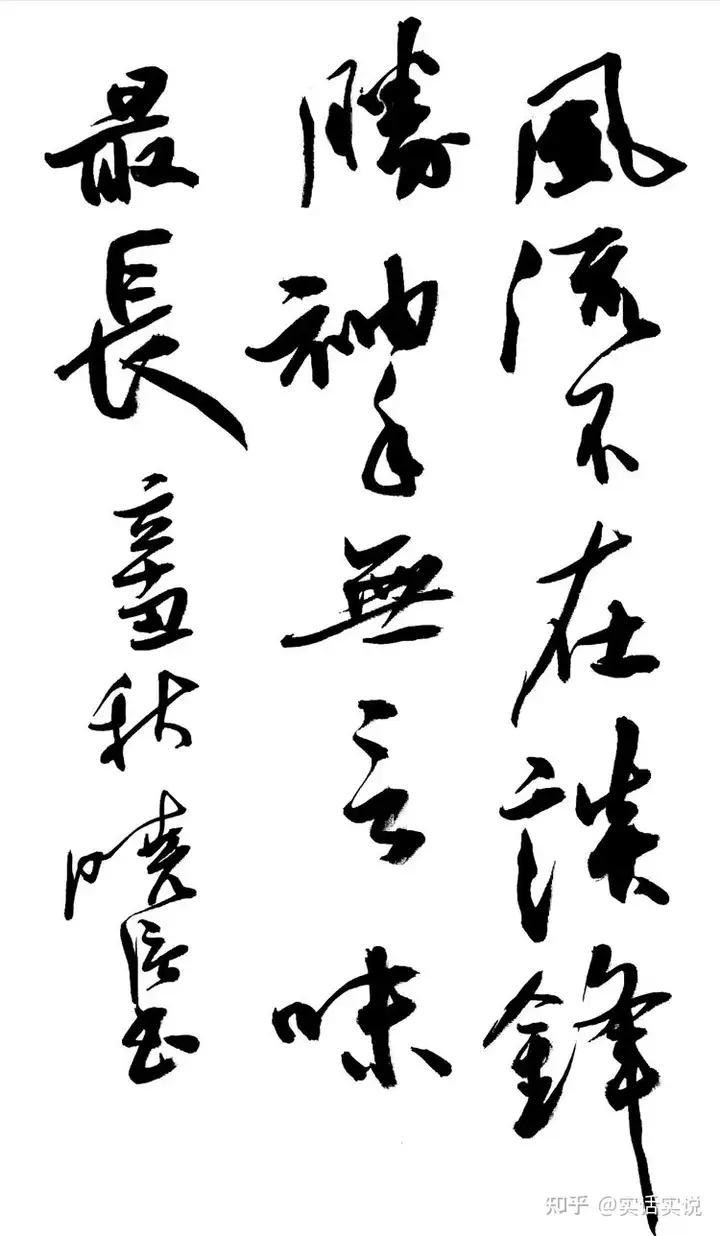 風流不在談鋒
勝袖手無言味
最長 辛丑秋 曉 書
知乎 @实话实说